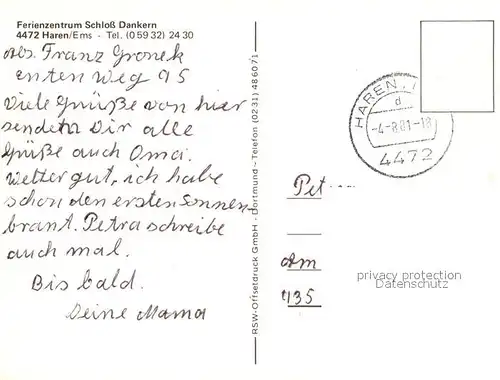 Ferienzentrum Schloß Dankern
4472 Haren/Ems - Tel. (0 59 32) 24 30
Abs. Franz Gronek
enten Weg 95
Viele Grüße von hier
senden Dir alle
Grüße auch Oma.
Wetter gut, ich habe
schon den ersten Sonnen-
brant. Petra schreibe
auch mal.
Bis bald.
Deine Mama
RSW-Offsetdruck GmbH - Dortmund - Telefon (02 31) 48 60 71
HAREN,
d
-4-8.81-18
4472
Pet
Am
435
privacy protection
Datenschutz